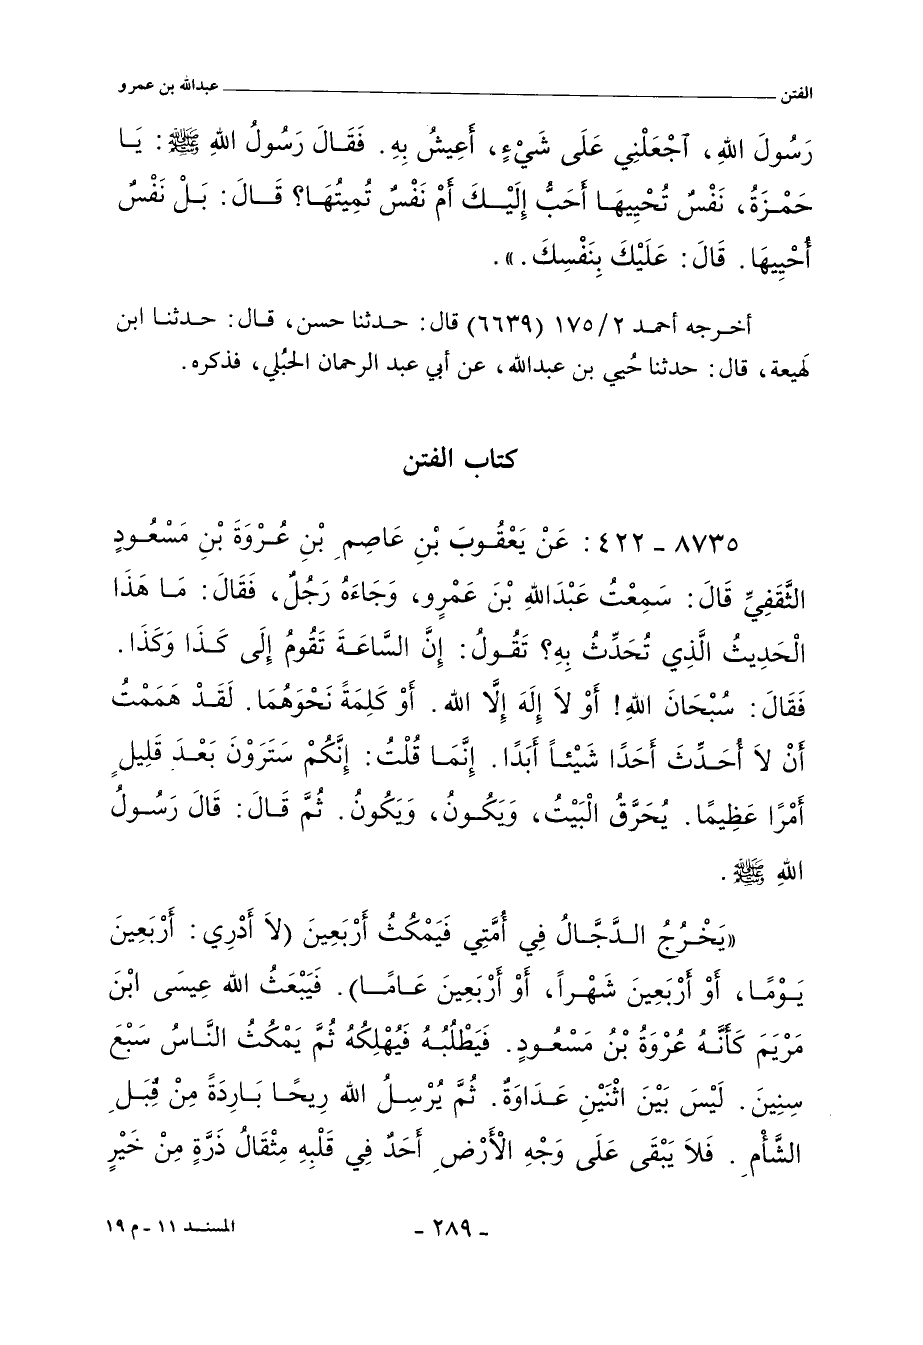 الفتن ــــــــــــــــــــ عبدالله بن عمرو
رَسُولَ اللهِ، اَجْعَلْنِي عَلَى شَيْءٍ، أَعِيشُ بِهِ. فَقَالَ رَسُولُ اللهِ ﷺ: يَا
حَمْزَةُ، نَفْسٌ تُحْيِيهَا أَحَبُّ إِلَيْكَ أَمْ نَفْسٌ تُمِيتُهَا؟ قَالَ: بَلْ نَفْسٌ
أُحْيِيهَا. قَالَ: عَلَيْكَ بِنَفْسِكَ.».
أخرجه أحمد ٢/ ١٧٥ (٦٦٣٩) قال: حدثنا حسن، قال: حدثنا ابن
لهيعة، قال: حدثنا حُيي بن عبدالله، عن أبي عبد الرحمان الحُبُلي، فذكره.
كتاب الفتن
٨٧٣٥ - ٤٢٢: عَنْ يَعْقُوبَ بْنِ عَاصِمِ بْنِ عُرْوَةَ بْنِ مَسْعُودٍ
الثَّقَفِيِّ قَالَ: سَمِعْتُ عَبْدَاللهِ بْنَ عَمْرٍو، وَجَاءَهُ رَجُلٌ، فَقَالَ: مَا هَذَا
الْحَدِيثُ الَّذِي تُحَدِّثُ بِهِ؟ تَقُولُ: إِنَّ السَّاعَةَ تَقُومُ إِلَى كَذَا وَكَذَا.
فَقَالَ: سُبْحَانَ اللهِ! أَوْ لاَ إِلَهَ إِلَّا الله. أَوْ كَلِمَةً نَحْوَهُمَا. لَقَدْ هَمَمْتُ
أَنْ لاَ أُحَدِّثَ أَحَدًا شَيْئاً أَبَدًا. إِنَّمَا قُلْتُ: إِنَّكُمْ سَتَرَوْنَ بَعْدَ قَلِيلٍ
أَمْرًا عَظِيمًا. يُحَرَّقُ الْبَيْتُ، وَيَكُونُ، وَيَكُونُ. ثُمَّ قَالَ: قَالَ رَسُولُ
اللهِ ﷺ.
«يَخْرُجُ الدَّجَّالُ فِي أُمَّتِي فَيَمْكُثُ أَرْبَعِينَ (لاَ أَدْرِي: أَرْبَعِينَ
يَوْمًا، أَوْ أَرْبَعِينَ شَهْراً، أَوْ أَرْبَعِينَ عَامًا). فَيَبْعَثُ الله عِيسَى ابْنَ
مَرْيَمَ كَأَنَّهُ عُرْوَةُ بْنُ مَسْعُودٍ. فَيَطْلُبُهُ فَيُهْلِكُهُ ثُمَّ يَمْكُثُ النَّاسُ سَبْعَ
سِنِينَ. لَيْسَ بَيْنَ اثْنَيْنِ عَدَاوَةٌ. ثُمَّ يُرْسِلُ الله رِيحًا بَارِدَةً مِنْ قِبَلِ
الشَّأْمِ. فَلاَ يَبْقَى عَلَى وَجْهِ الْأَرْضِ أَحَدٌ فِي قَلْبِهِ مِثْقَالُ ذَرَّةٍ مِنْ خَيْرٍ
- ٢٨٩ - المسند ١١ - م ١٩